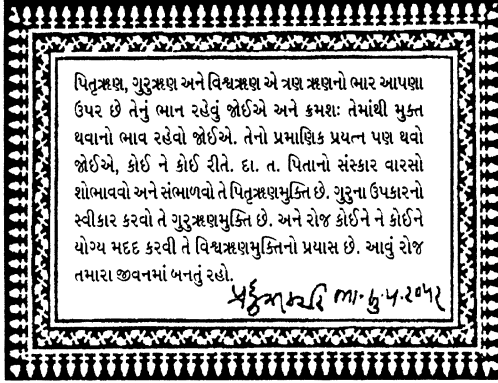 પિતૃઋણ, ગુરુઋણ અને વિશ્વઋણ એ ત્રણ ઋણનો ભાર આપણા
ઉપર છે તેનું ભાન રહેવું જોઈએ અને ક્રમશઃ તેમાંથી મુક્ત
થવાનો ભાવ રહેવો જોઈએ. તેનો પ્રમાણિક પ્રયત્ન પણ થવો
જોઈએ, કોઈ ને કોઈ રીતે. દા. ત. પિતાનો સંસ્કાર વારસો
શોભાવવો અને સંભાળવો તે પિતૃઋણમુક્તિ છે. ગુરુના ઉપકારનો
સ્વીકાર કરવો તે ગુરુઋણમુક્તિ છે. અને રોજ કોઈને ને કોઈને
યોગ્ય મદદ કરવી તે વિશ્વઋણમુક્તિનો પ્રયાસ છે. આવું રોજ
તમારા જીવનમાં બનતું રહો.